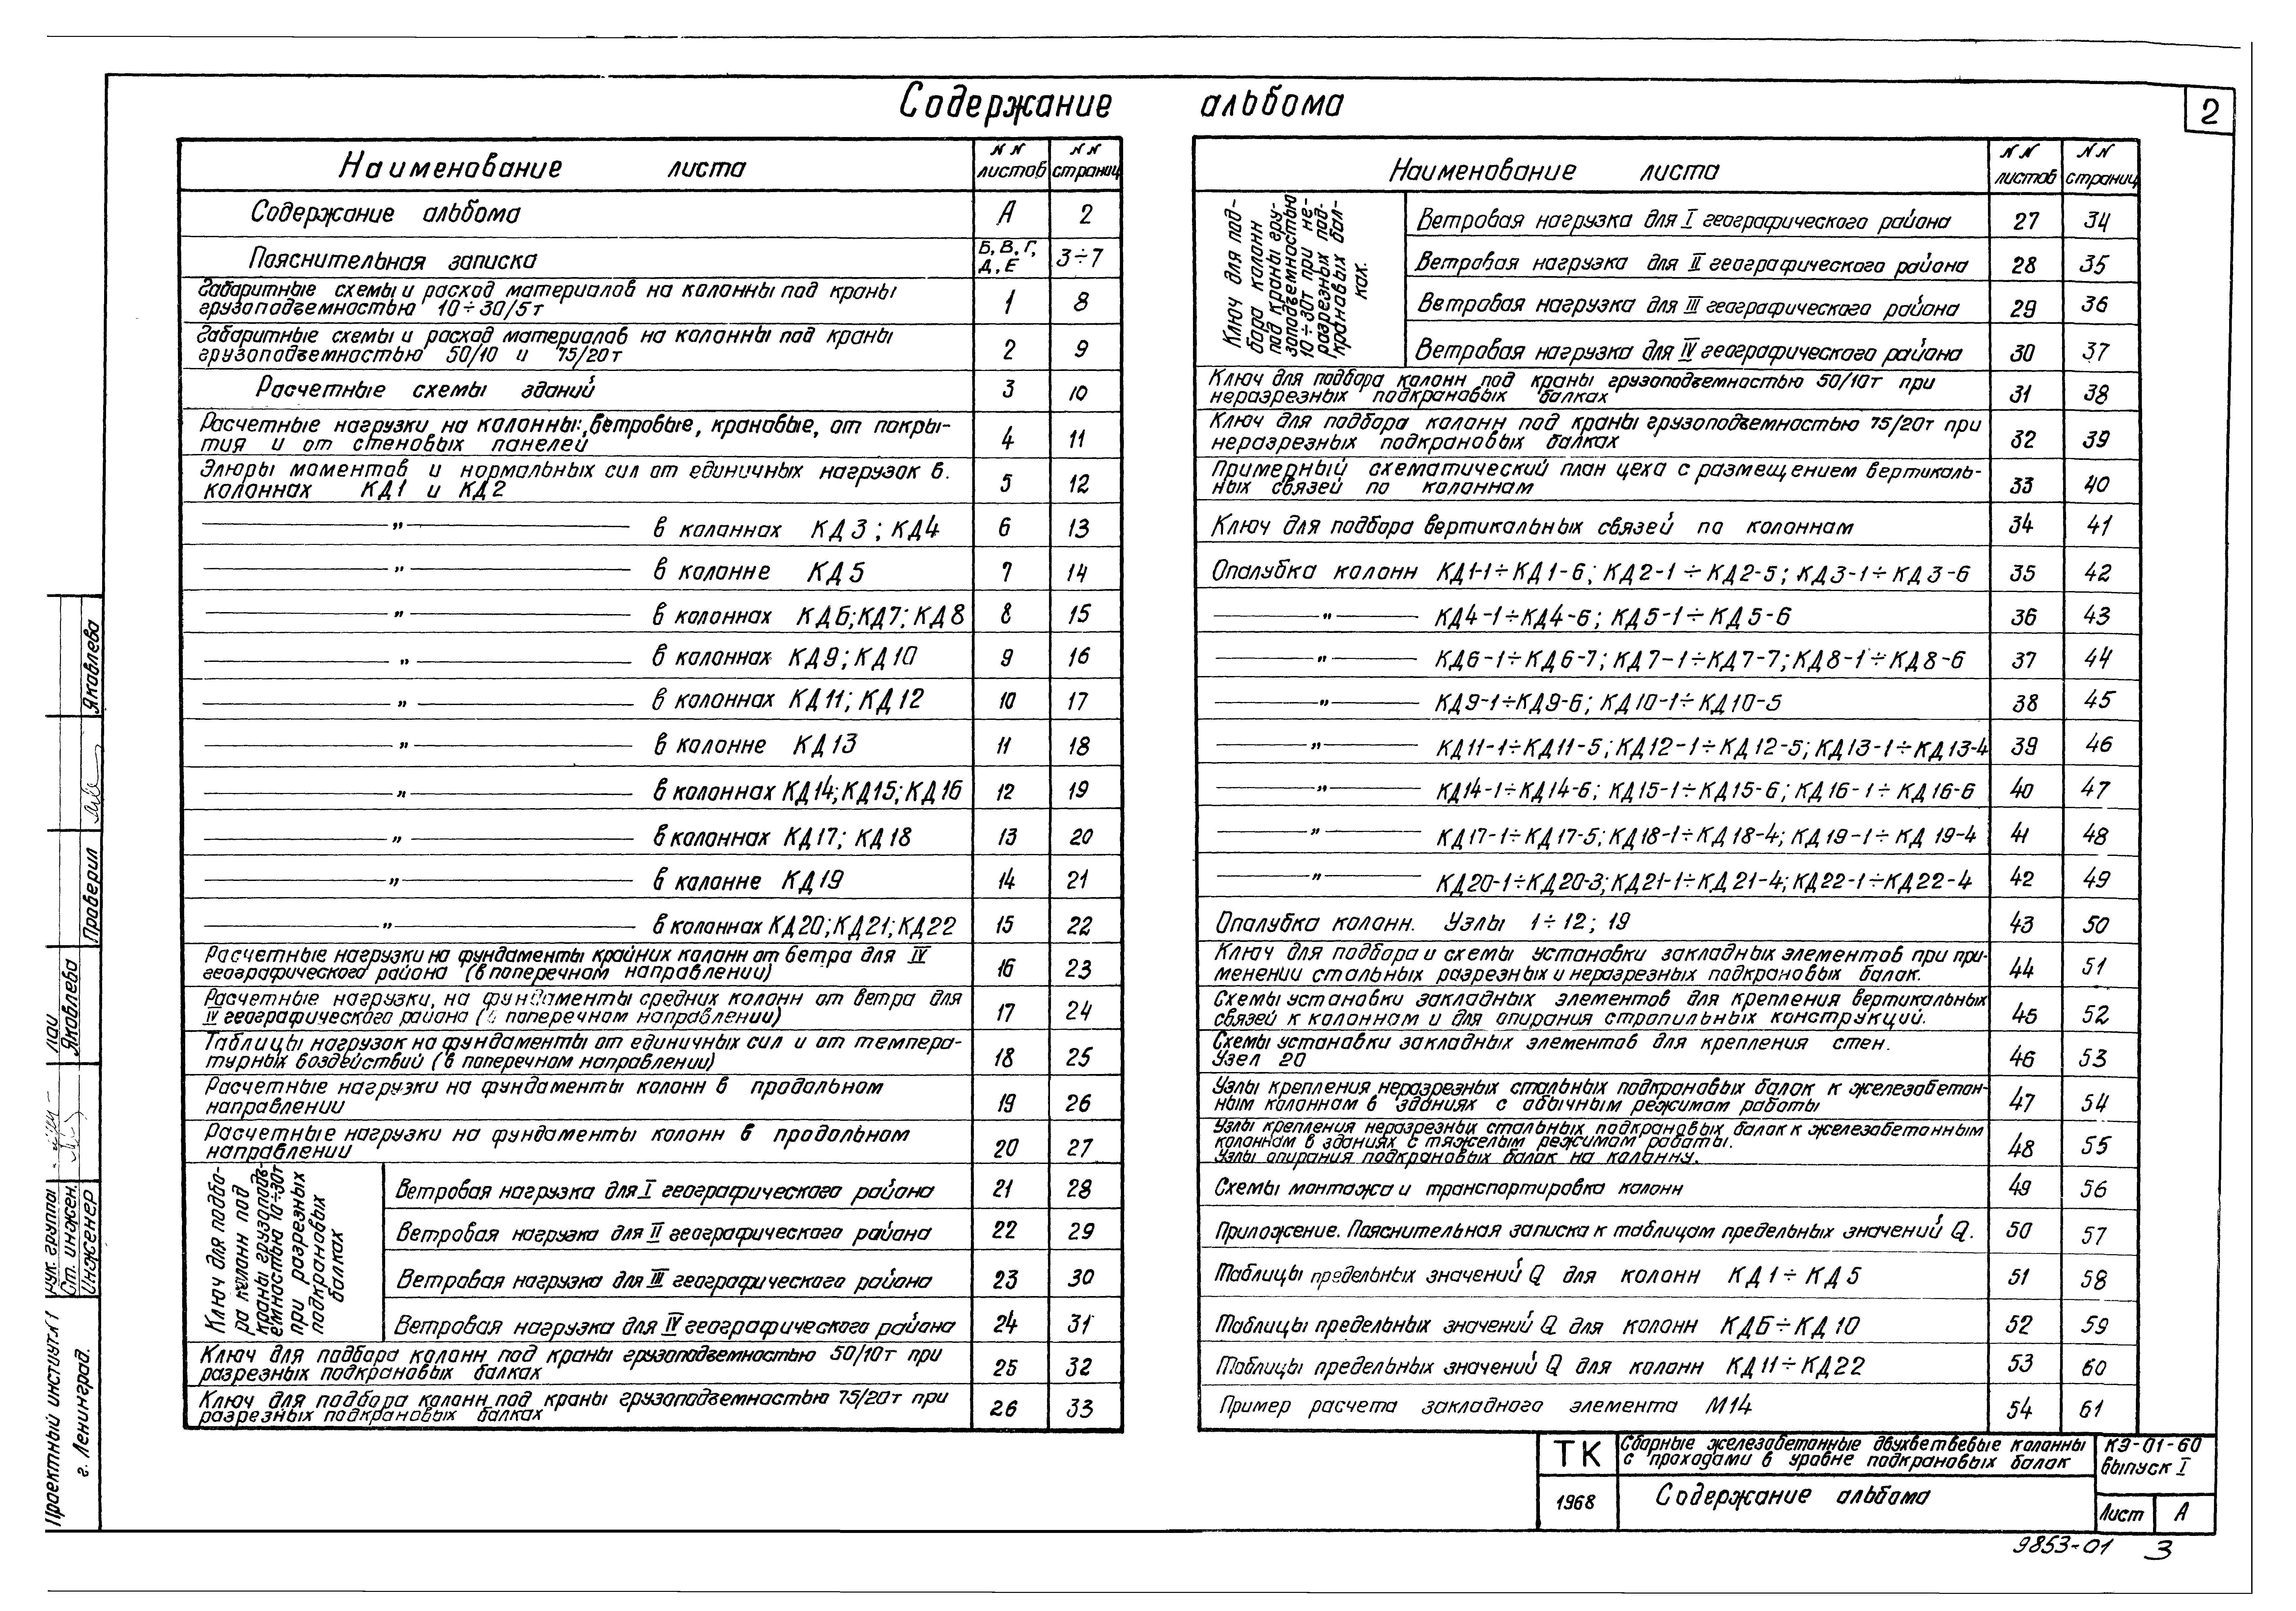 Содержание альбома
2
Наименование листа
N N листов
N N страниц
Содержание альбома А 2
Пояснительная записка Б, В, Г, Д, Е 3÷7
Габаритные схемы и расход материалов на колонны под краны
грузоподъемностью 10÷30/5т 1 8
Габаритные схемы и расход материалов на колонны под краны
грузоподъемностью 50/10 и 75/20т 2 9
Расчетные схемы зданий 3 10
Расчетные нагрузки на колонны:, ветровые, крановые, от покры-
тия и от стеновых панелей 4 11
Эпюры моментов и нормальных сил от единичных нагрузок в.
колоннах КД1 и КД2 5 12
— " — в колоннах КД3; КД4 6 13
— " — в колонне КД5 7 14
— " — в колоннах КД6; КД7; КД8 8 15
— " — в колоннах КД9; КД10 9 16
— " — в колоннах КД11; КД12 10 17
— " — в колонне КД13 11 18
— " — в колоннах КД14; КД15; КД16 12 19
— " — в колоннах КД17; КД18 13 20
— " — в колонне КД19 14 21
— " — в колоннах КД20; КД21; КД22 15 22
Расчетные нагрузки на фундаменты крайних колонн от ветра для IV
географического района (в поперечном направлении) 16 23
Расчетные нагрузки, на фундаменты средних колонн от ветра для
IV географического района (в поперечном направлении) 17 24
Таблицы нагрузок на фундаменты от единичных сил и от темпера-
турных воздействий (в поперечном направлении) 18 25
Расчетные нагрузки на фундаменты колонн в продольном
направлении 19 26
Расчетные нагрузки на фундаменты колонн в продольном
направлении 20 27
Ключ для подбо-
ра колонн под
краны грузоподъ-
емностью 10÷30т
при разрезных
подкрановых
балках
Ветровая нагрузка для I географического района 21 28
Ветровая нагрузка для II географического района 22 29
Ветровая нагрузка для III географического района 23 30
Ветровая нагрузка для IV географического района 24 31
Ключ для подбора колонн под краны грузоподъемностью 50/10т при
разрезных подкрановых балках 25 32
Ключ для подбора колонн под краны грузоподъемностью 75/20т при
разрезных подкрановых балках 26 33
Наименование листа
N N листов
N N страниц
Ключ для под-
бора колонн
под краны гру-
зоподъемностью
10÷30т при не-
разрезных под-
крановых бал-
ках.
Ветровая нагрузка для I географического района 27 34
Ветровая нагрузка для II географического района 28 35
Ветровая нагрузка для III географического района 29 36
Ветровая нагрузка для IV географического района 30 37
Ключ для подбора колонн под краны грузоподъемностью 50/10т при
неразрезных подкрановых балках 31 38
Ключ для подбора колонн под краны грузоподъемностью 75/20т при
неразрезных подкрановых балках 32 39
Примерный схематический план цеха с размещением вертикаль-
ных связей по колоннам 33 40
Ключ для подбора вертикальных связей по колоннам 34 41
Опалубка колонн КД1-1÷КД1-6; КД2-1÷КД2-5; КД3-1÷КД3-6 35 42
— " — КД4-1÷КД4-6; КД5-1÷КД5-6 36 43
— " — КД6-1÷КД6-7; КД7-1÷КД7-7; КД8-1÷КД8-6 37 44
— " — КД9-1÷КД9-6; КД10-1÷КД10-5 38 45
— " — КД11-1÷КД11-5; КД12-1÷КД12-5; КД13-1÷КД13-4 39 46
— " — КД14-1÷КД14-6; КД15-1÷КД15-6; КД16-1÷КД16-6 40 47
— " — КД17-1÷КД17-5; КД18-1÷КД18-4; КД19-1÷КД19-4 41 48
— " — КД20-1÷КД20-3; КД21-1÷КД21-4; КД22-1÷КД22-4 42 49
Опалубка колонн. Узлы 1÷12; 19 43 50
Ключ для подбора и схемы установки закладных элементов при при-
менении стальных разрезных и неразрезных подкрановых балок. 44 51
Схемы установки закладных элементов для крепления вертикальных
связей к колоннам и для опирания стропильных конструкций. 45 52
Схемы установки закладных элементов для крепления стен.
Узел 20 46 53
Узлы крепления неразрезных стальных подкрановых балок к железобетон-
ным колоннам в зданиях с обычным режимам работы 47 54
Узлы крепления неразрезных стальных подкрановых балок к железобетонным
колоннам в зданиях с тяжелым режимам работы.
Узлы опирания подкрановых балок на колонну. 48 55
Схемы монтажа и транспортировка колонн 49 56
Приложение. Пояснительная записка к таблицам предельных значений Q. 50 57
Таблицы предельных значений Q для колонн КД1÷КД5 51 58
Таблицы предельных значений Q для колонн КД6÷КД10 52 59
Таблицы предельных значений Q для колонн КД11÷КД22 53 60
Пример расчета закладного элемента М14 54 61
ТК
1968
Сборные железобетонные двухветвевые колонны
с проходами в уровне подкрановых балок
Содержание альбома
КЭ-01-60
выпуск I
Лист А
9853-01 3
Проектный институт N 1
г. Ленинград.
Рук. группы
Ст. инжен.
Инженер
Яковлева
Проверил
Яковлева